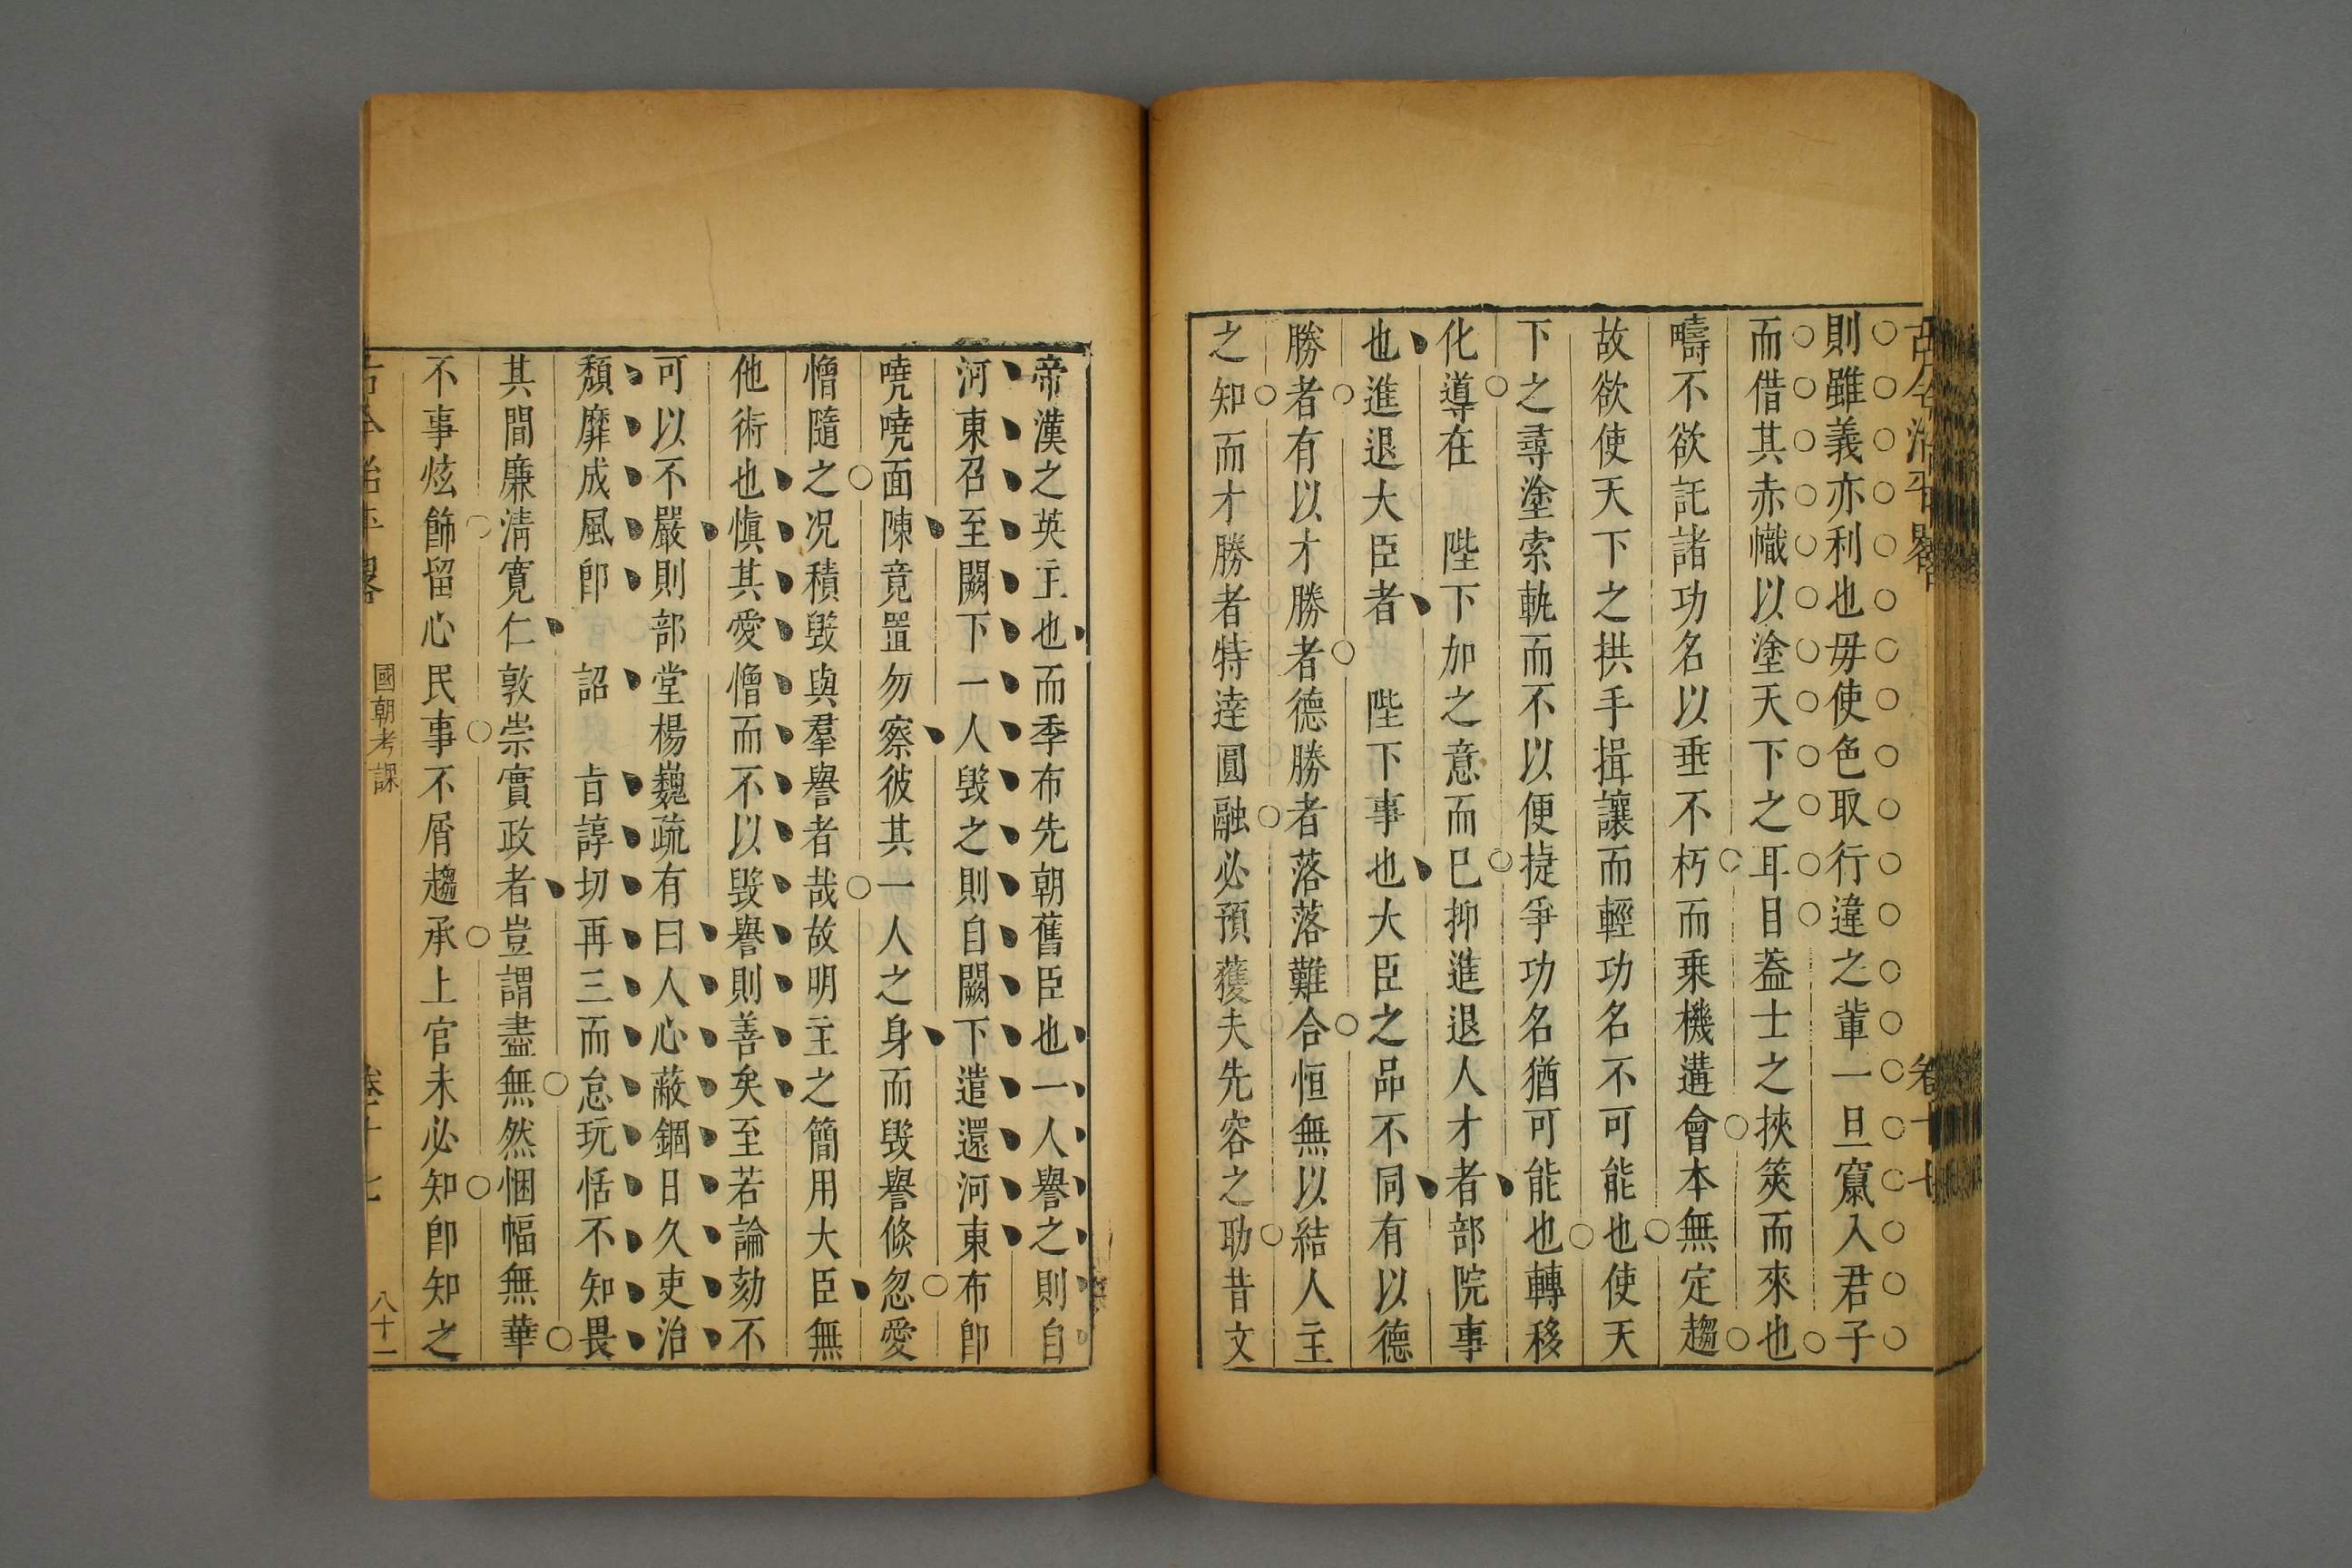 古今治平畧 卷十七
則雖義亦利也毋使色取行違之輩一旦竄入君子
而借其赤幟以塗天下之耳目葢士之挾筴而來也
疇不欲託諸功名以垂不朽而乗機遘會本無定趨
故欲使天下之拱手揖讓而輕功名不可能也使天
下之尋塗索軌而不以便捷爭功名猶可能也轉移
化導在 陛下加之意而已抑進退人才者部院事
也進退大臣者 陛下事也大臣之品不同有以德
勝者有以才勝者德勝者落落難合恒無以結人主
之知而才勝者特達圓融必預獲夫先容之助昔文
帝漢之英主也而季布先朝舊臣也一人譽之則自
河東召至闕下一人毀之則自闕下遣還河東布卽
嘵嘵面陳竟置勿察彼其一人之身而毀譽倐忽愛
憎隨之况積毀與羣譽者哉故明主之簡用大臣無
他術也愼其愛憎而不以毀譽則善矣至若論劾不
可以不嚴則部堂楊巍疏有曰人心蔽錮日久吏治
頹靡成風卽 詔 㫖諄切再三而怠玩恬不知畏
其間廉淸寛仁敦崇實政者豈謂盡無然悃幅無華
不事炫飾留心民事不屑趨承上官未必知卽知之
古今治平畧 國朝考課 卷十七 八十一